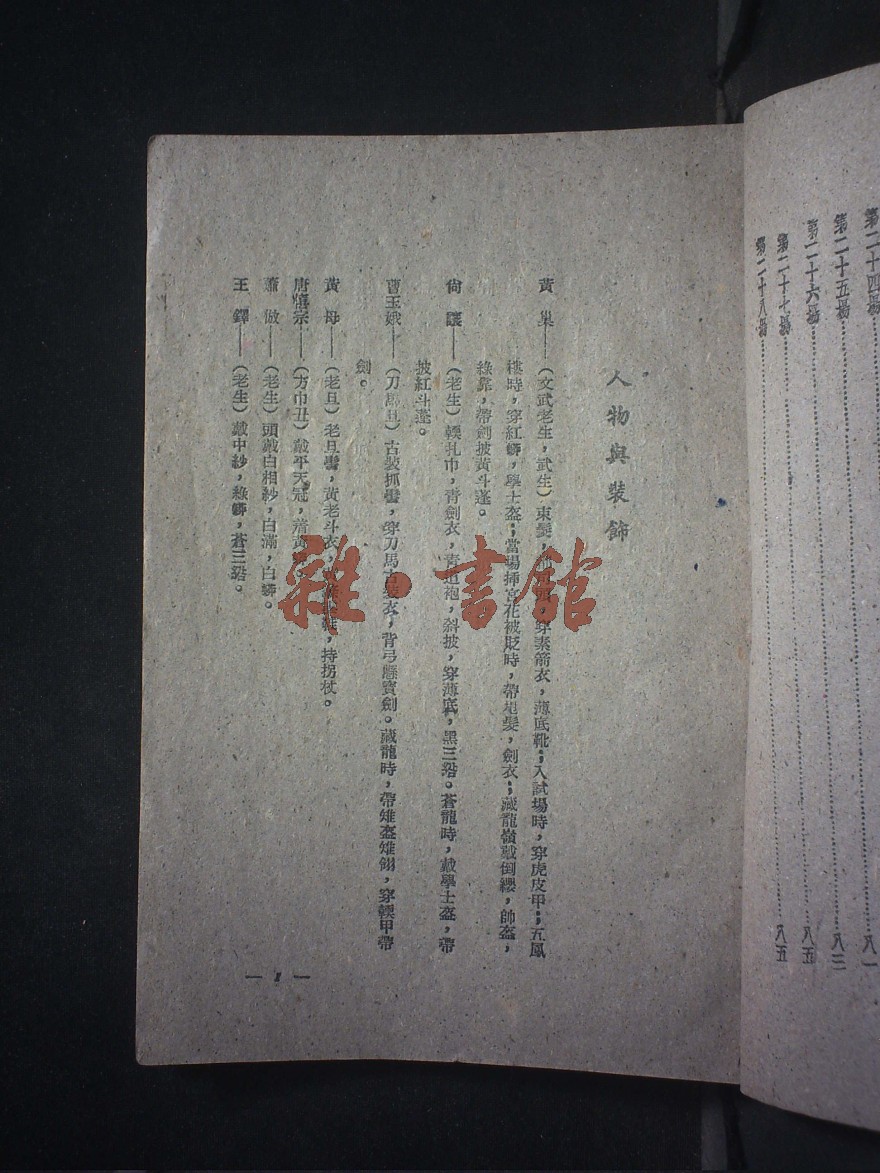 第二十四場………八一
第二十五場………八三
第二十六場………八五
第二十七場………八五
第二十八場
人物與裝飾
黃　巢——（文武老生，武生）束髮，穿素箭衣，薄底靴；入試場時，穿虎皮甲；五鳳
樓時，穿紅蟒，學士盔；當場揷宮花被貶時，帶甩髮，劍衣；藏龍嶺戴倒纓，帥盔，
綠靠，帶劍披黃斗蓬。
尙　讓——（老生）輭扎巾，青劍衣，青道袍，斜披，穿薄底，黑三綹。蒼龍時，戴學士盔，帶
披紅斗蓬。
曹玉娥——（刀馬旦）古裝抓髻，穿刀馬古裝衣，背弓懸寶劍。藏龍時，帶雉盔雉翎，穿輭甲帶
劍。
黃　母——（老旦）老旦髻，黃老斗衣，鞋，持拐杖。
唐僖宗——（方巾丑）戴平天冠，着黃
蕭　倣——（老生）頭戴白相紗，白滿，白蟒。
王　鐸——（老生）戴中紗，綠蟒，蒼三綹。
— 1 —
雜·書館